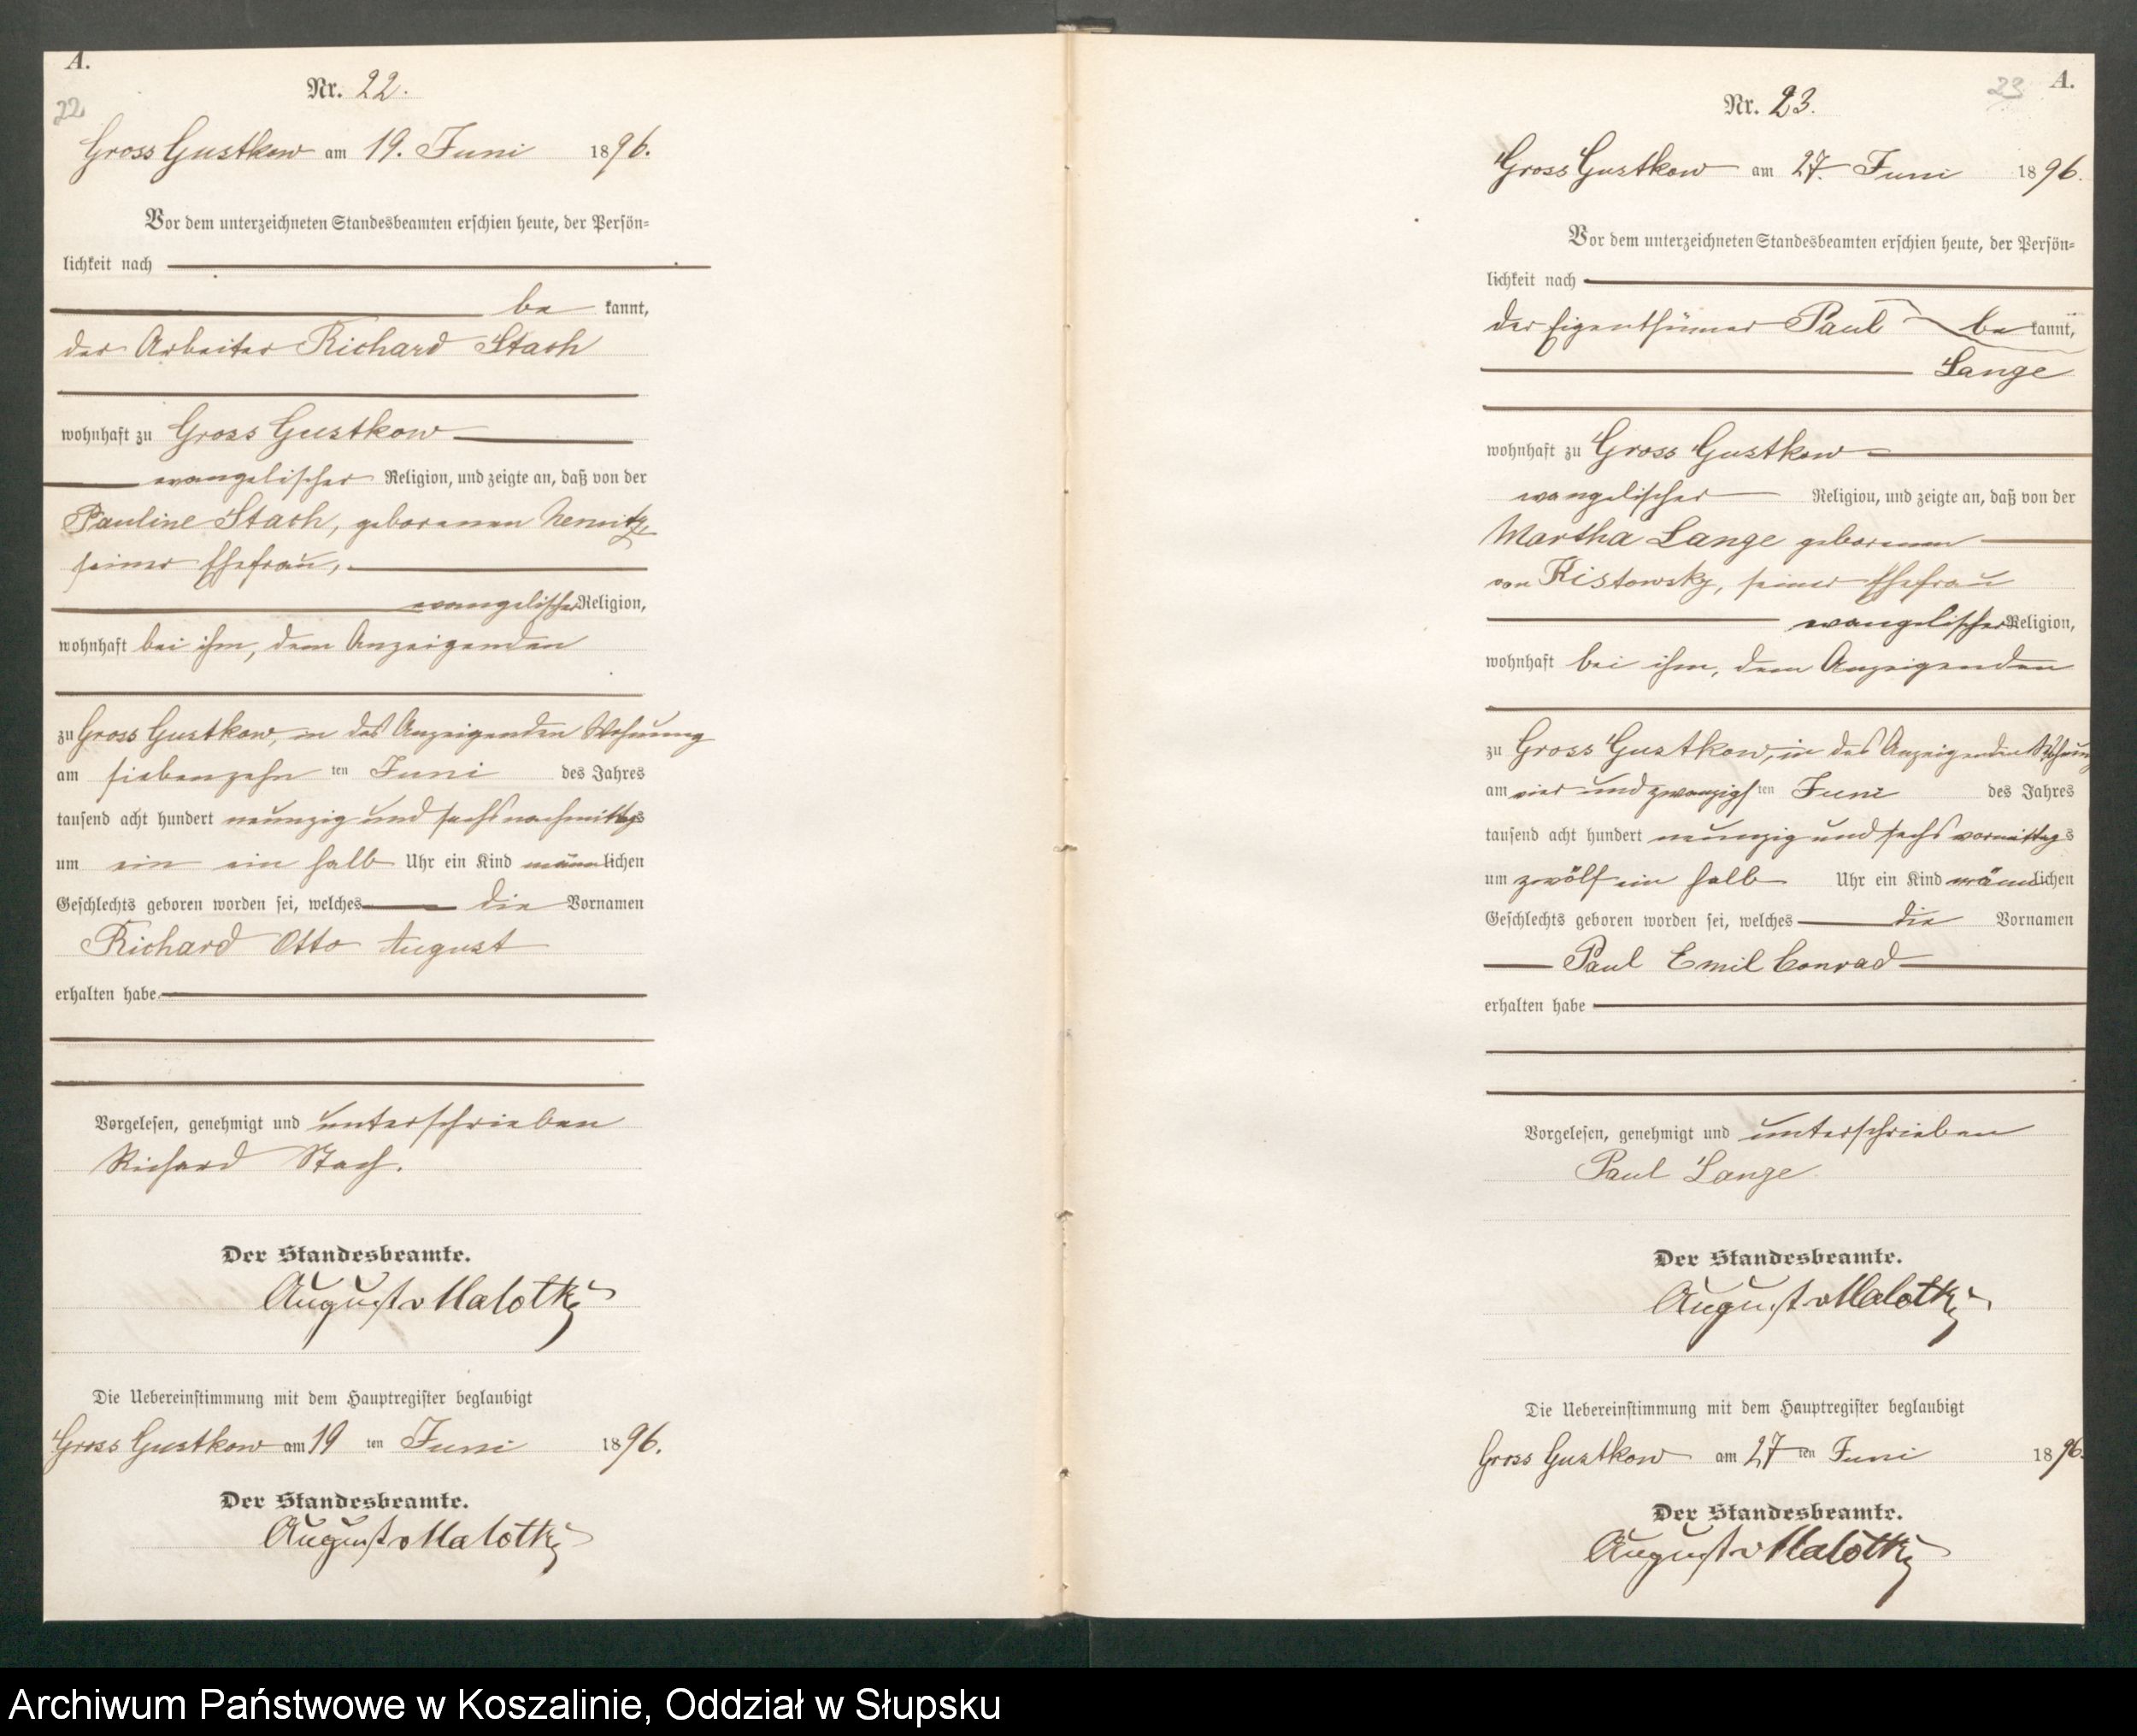 A.
22
Nr. 22.
Gross Gustkow am 19. Juni 1896.
Vor dem unterzeichneten Standesbeamten erschien heute, der Persön-
lichkeit nach
be kannt,
der Arbeiter Richard Stach
wohnhaft zu Gross Gustkow
evangelischer Religion, und zeigte an, daß von der
Pauline Stach, geborenen Nemitz,
seiner Ehefrau,
evangelischer Religion,
wohnhaft bei ihm, dem Anzeigenden
zu Gross Gustkow, in des Anzeigenden Wohnung
am siebenzehn ten Juni des Jahres
tausend acht hundert neunzig und sechs nachmittags
um ein ein halb Uhr ein Kind männlichen
Geschlechts geboren worden sei, welches die Vornamen
Richard Otto August
erhalten habe.
Vorgelesen, genehmigt und unterschrieben
Richard Stach.
Der Standesbeamte.
August v Malottky
Die Uebereinstimmung mit dem Hauptregister beglaubigt
Gross Gustkow am 19 ten Juni 1896.
Der Standesbeamte.
August v Malottky
23 A.
Nr. 23.
Gross Gustkow am 27. Juni 1896.
Vor dem unterzeichneten Standesbeamten erschien heute, der Persön-
lichkeit nach
der Eigenthümer Paul be kannt,
Lange
wohnhaft zu Gross Gustkow
evangelischer Religion, und zeigte an, daß von der
Martha Lange geborenen
von Kistowsky, seiner Ehefrau
evangelischer Religion,
wohnhaft bei ihm, dem Anzeigenden
zu Gross Gustkow, in des Anzeigenden Wohnung
am vier und zwanzigs ten Juni des Jahres
tausend acht hundert neunzig und sechs vormittags
um zwölf ein halb Uhr ein Kind männlichen
Geschlechts geboren worden sei, welches die Vornamen
Paul Emil Conrad
erhalten habe
Vorgelesen, genehmigt und unterschrieben
Paul Lange
Der Standesbeamte.
August v Malottky
Die Uebereinstimmung mit dem Hauptregister beglaubigt
Gross Gustkow am 27 ten Juni 1896.
Der Standesbeamte.
August v Malottky
Archiwum Państwowe w Koszalinie, Oddział w Słupsku